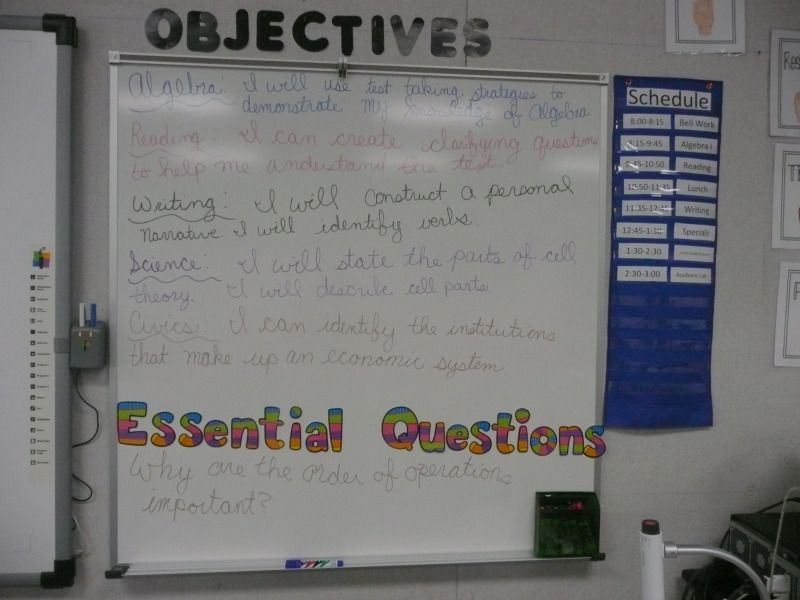 OBJECTIVES
Algebra: I will use test taking strategies to
demonstrate my knowledge of Algebra
Reading: I can create clarifying questions
to help me understand the text.
Writing: I will construct a personal
narrative I will identify verbs.
Science: I will state the parts of cell
theory. I will describe cell parts.
Civics: I can identify the institutions
that make up an economic system.
Essential Questions
Why are the order of operations
important?
Schedule
8:00-8:15 Bell Work
8:15-9:45 Algebra I
9:45-10:50 Reading
10:50-11:35 Lunch
11:35-12:45 Writing
12:45-1:30 Specials
1:30-2:30
2:30-3:00 Academic Lab